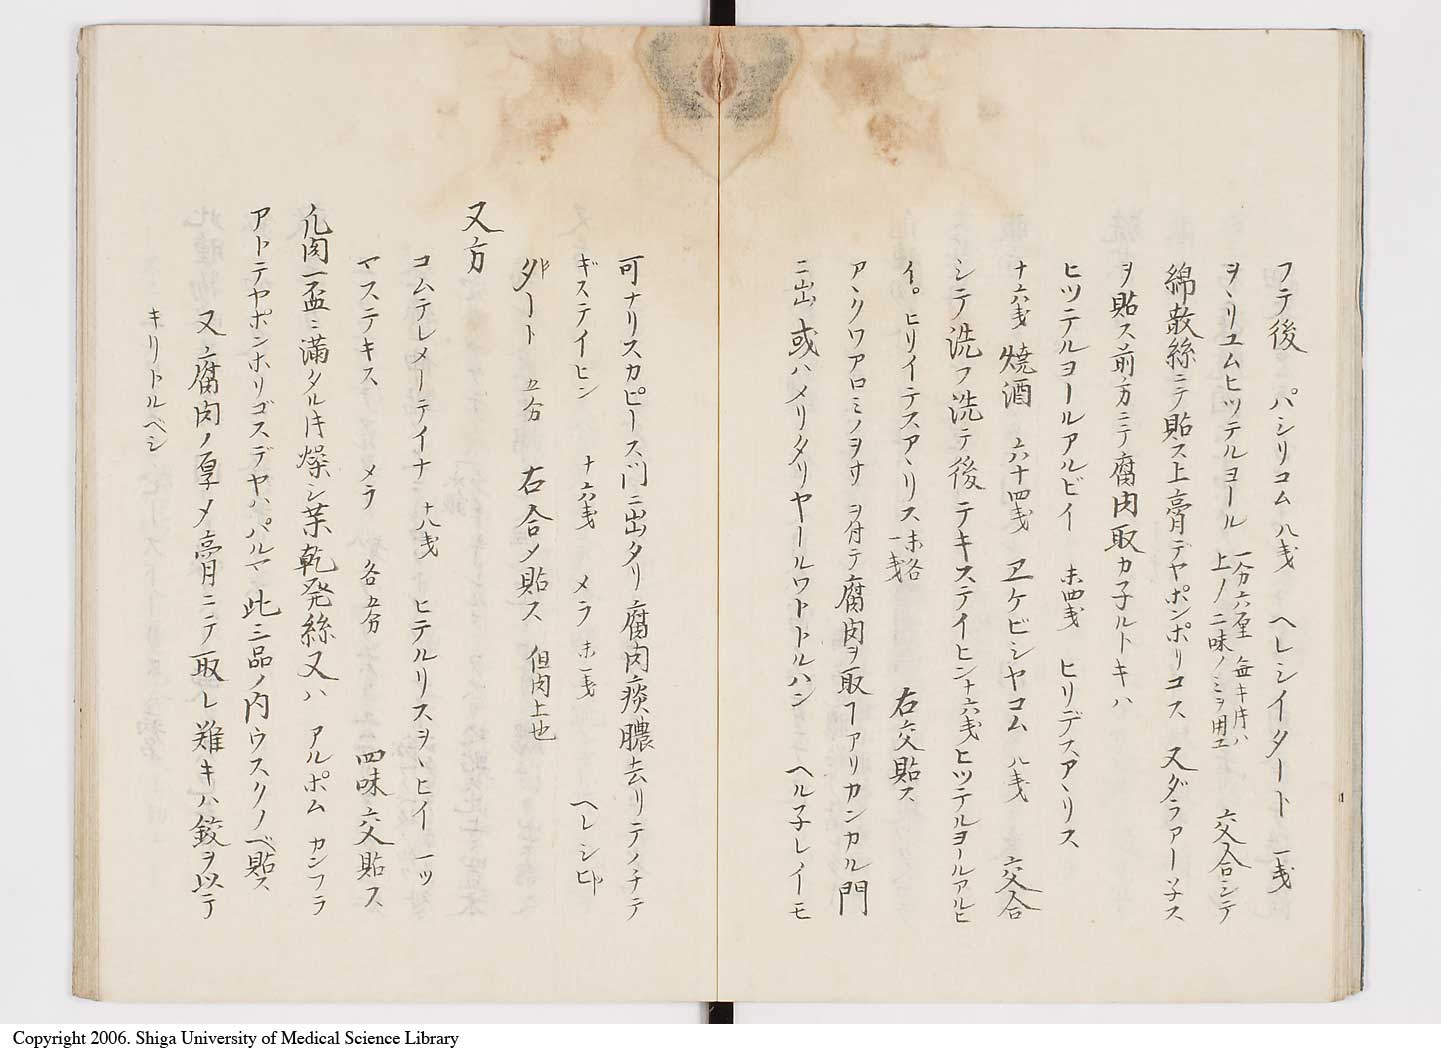 フテ後 パシリコム 八戔 ヘレシイタート 一戔
ヲヽリユムヒツテルヨール 一分六厘 無キ片ハ 上ノ二味ノミヲ用ユ 交合シテ
綿散絲ニテ貼ス上膏デヤポンポリコス 又ダラアー子ス
ヲ貼ス前方ニテ腐肉取カ子ルトキハ
ヒツテルヨールアルビイ 末四戔 ヒリデスアヽリス
十六戔 焼酒 六十四戔 ヱケビシヤコム 八戔 交合
シテ洗フ洗テ後 テキステイヒン 十六戔 ヒツテルヨールアルヒ
イ。ヒリイテスアヽリス 末各一戔 右交貼ス
アヽクワアロミノヲサ ヲ付テ腐肉ヲ取フアリカンカル門
ニ出 或ハメリタリヤールワトトルハン ヘル子レイーモ
可ナリスカピース門ニ出タリ腐肉痰膿去リテノチテ
ギステイヒン 十六戔 メラ 末一戔 ヘレシヒ
タート 五分 右合メ貼ス 但肉上也
又方
コムテレメーテイナ 十八戔 ヒテルリスヲヽヒイ 一ツ
マステキス メラ 各五分 四味交貼ス
凢肉一盃ニ満タル片燥シ葉乾発絲又ハ アルポム カンフラ
アトテヤポンホリゴスデヤハパルマ 此三品ノ内ウスクノベ貼ス
又腐肉ノ厚メ膏ニテ取レ難キハ鋏ヲ以テ
キリトルベシ
Copyright 2006. Shiga University of Medical Science Library